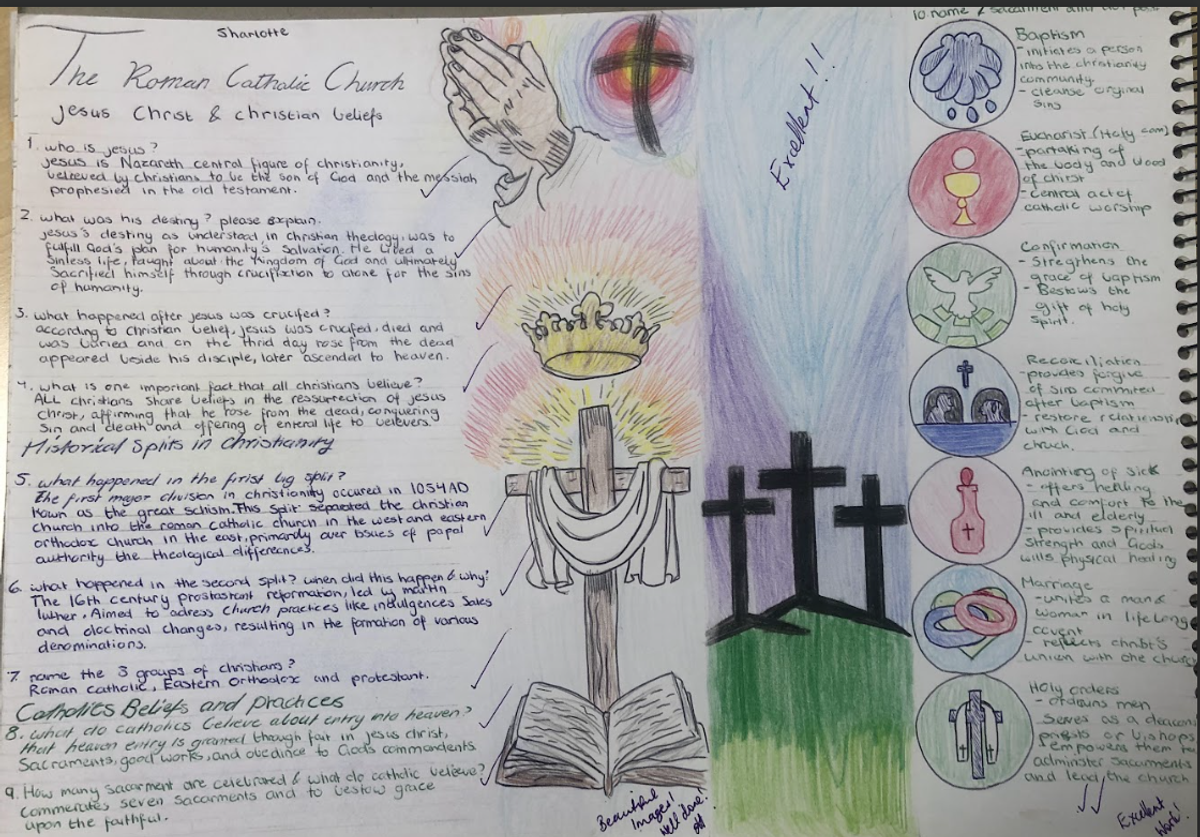 Sharlotte
The Roman Catholic Church
Jesus Christ & christian beliefs
1. who is jesus?
jesus is Nazareth central figure of christianity,
believed by christians to be the son of God and the messiah
prophesied in the old testament.
2. what was his destiny? please explain.
jesus's destiny as understood in christian theology, was to
fulfill God's plan for humanity's salvation. He lived a
sinless life, taught about the kingdom of God and ultimately
sacrificed himself through crucifixction to atone for the sins
of humanity.
3. what happened after jesus was crucifed?
according to Christian belief, jesus was crucifed, died and
was buried and on the thrid day rose from the dead
appeared beside his disciple, later ascended to heaven.
4. what is one important fact that all christians believe?
ALL christians share beliefs in the ressurection of jesus
Christ, affirming that he rose from the dead, conquering
Sin and death and offering of enteral life to believers.
Historical Splits in christianity
5. what happened in the frist big split?
The first major division in christianity occured in 1054AD
kown as the great schism. This split separated the christian
church into the roman catholic church in the west and eastern
orthodox church in the east, primarily over issues of papal
authority the theological differences.
6. what happened in the second split? when did this happen & why?
The 16th century prostastant reformation, led by martin
luther. Aimed to adress church practices like indulgences sales
and doctrinal changes, resulting in the formation of various
denominations.
7. name the 3 groups of christians?
Roman catholic, Eastern Orthodox and protestant.
Catholics Beliefs and practices
8. what do catholics believe about entry into heaven?
that heaven entry is granted though fair in jesus christ,
Sacraments, good works, and obedince to Gods commandents
9. How many sacarment are celebrated & what do catholic believe?
commerates seven sacarments and to bestow grace
upon the faithful.
Beautiful
Images!
Well done!
Excellent!!
10. name 7 sacarment and
Baptism
- initiates a person
into the christianity
community
- cleanse orginal
sins
Eucharist (Holy com)
- partaking of
the body and blood
of christ
- central act of
catholic worship
Confirmation
- Stregthens the
grace of baptism
- Bestows the
gift of holy
spirit.
Reconciliation
- provides forgive
of sins commited
after baptism
- restore relationship
with God and
chuch.
Anointing of sick
- offers healing
and comfort to the
ill and elderly
- provides spiritual
strength and Gods
wills physical healing
Marriage
- unites a man &
woman in life long
- reflects christ's
union with the church
Holy orders
- ordains men
serves as a deacon
or bishops
empowers them to
administer sacarments
and lead the church
Excellent
Work!